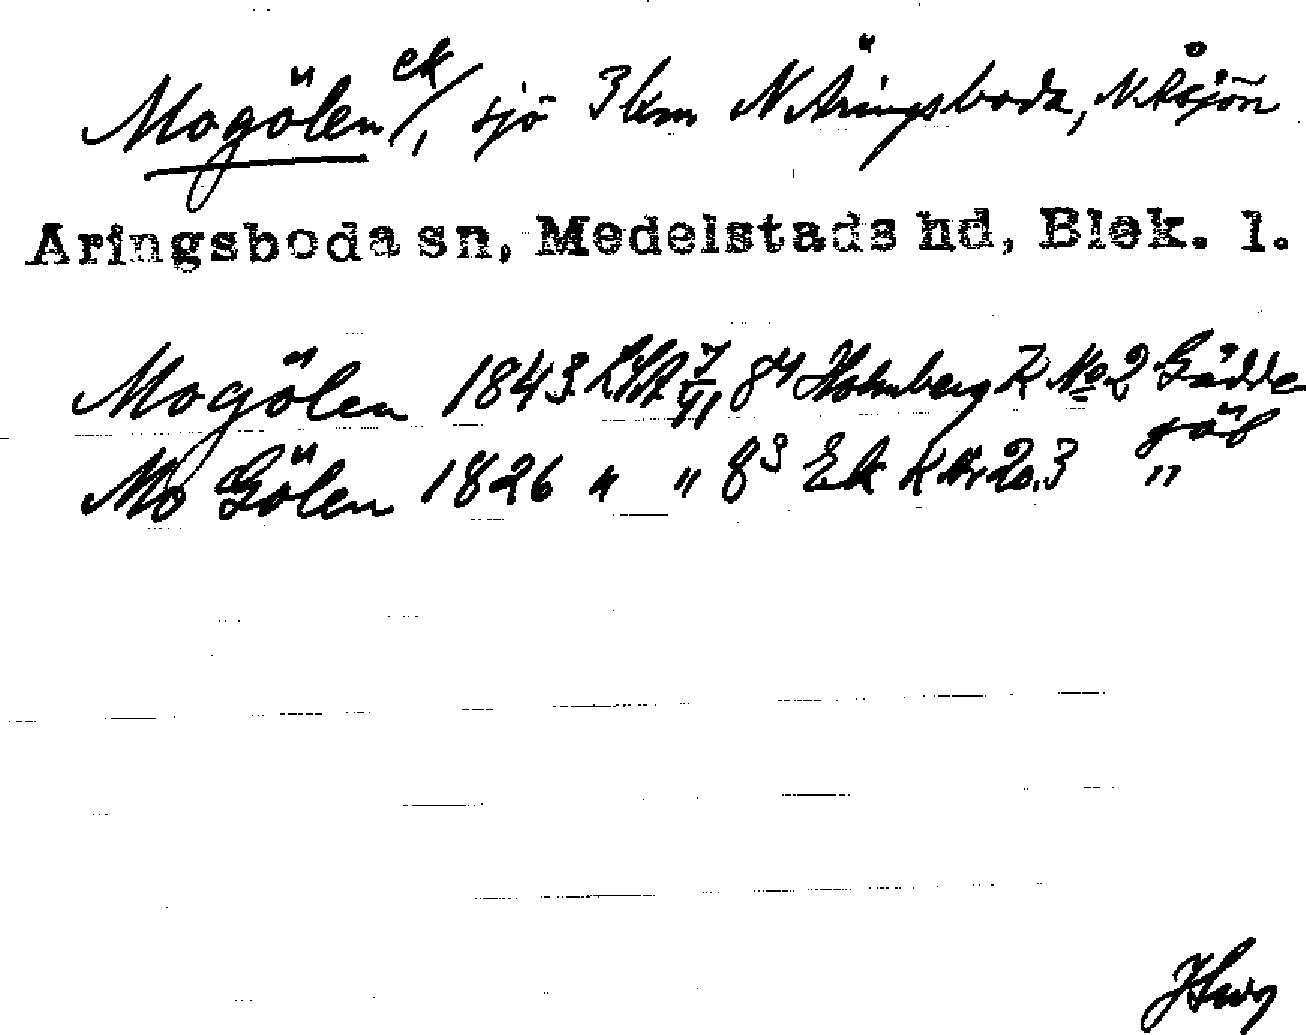 Mogölen ek/, sjö 3 km N Äringsboda, N. Åsjön
Aringsboda sn, Medelstads hd, Blek. l.
Mogölen 1843 LSA 84 Holmberg K No 2 Gädde-
göl
Mo Gölen 1826 " " 83 Ek K Nr 20.3 "